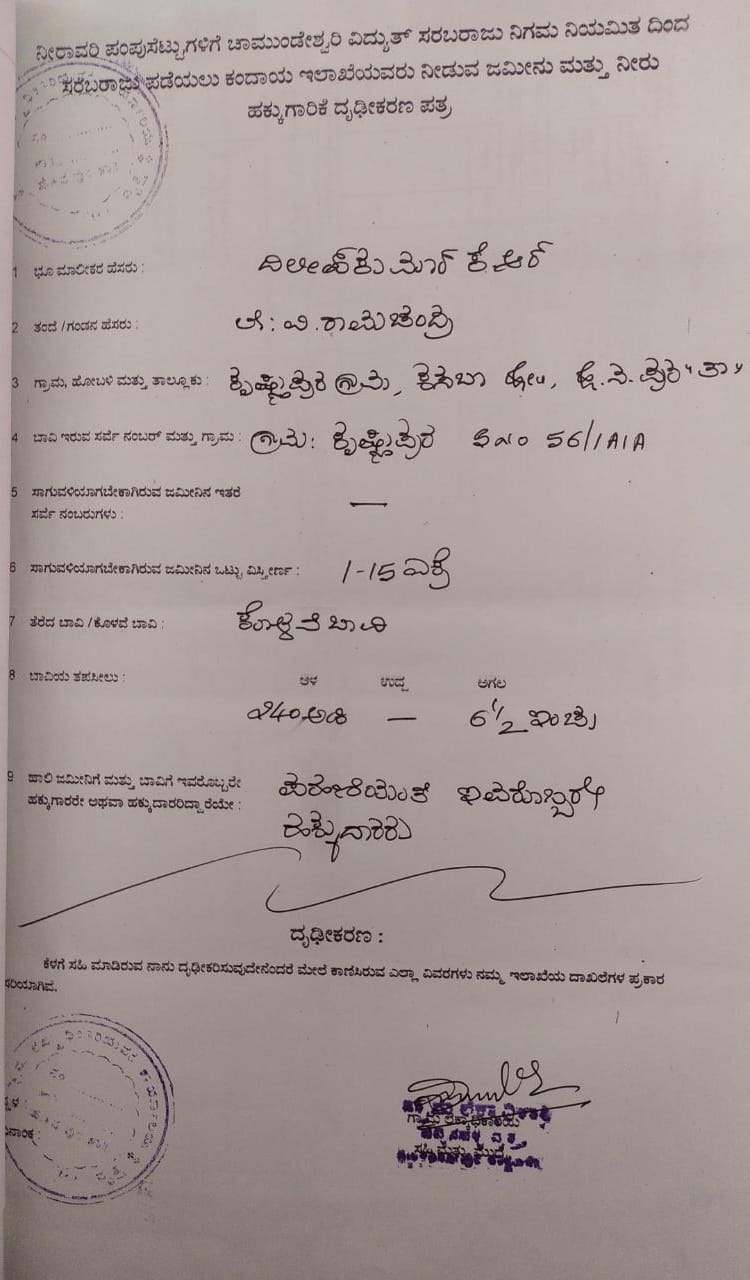 ನೀರಾವರಿ ಪಂಪುಸೆಟ್ಟುಗಳಿಗೆ ಚಾಮುಂಡೇಶ್ವರಿ ವಿದ್ಯುತ್ ಸರಬರಾಜು ನಿಗಮ ನಿಯಮಿತ ದಿಂದ
ಸರಬರಾಜು ಪಡೆಯಲು ಕಂದಾಯ ಇಲಾಖೆಯವರು ನೀಡುವ ಜಮೀನು ಮತ್ತು ನೀರು
ಹಕ್ಕುಗಾರಿಕೆ ದೃಢೀಕರಣ ಪತ್ರ
1 ಭೂ ಮಾಲೀಕರ ಹೆಸರು : ದಿಲೀಪ್‌ಕುಮಾರ್ ಕೆ.ಆರ್
2 ತಂದೆ / ಗಂಡನ ಹೆಸರು : ವಿ. ರಾಮಚಂದ್ರ
3 ಗ್ರಾಮ, ಹೋಬಳಿ ಮತ್ತು ತಾಲ್ಲೂಕು : ಕೃಷ್ಣಾಪುರ ಗ್ರಾಮ, ಕಸಬಾ ಹೋ॥, ಹೊ.ನ.ಪುರ "ತಾ"
4 ಬಾವಿ ಇರುವ ಸರ್ವೆ ನಂಬರ್ ಮತ್ತು ಗ್ರಾಮ : ಗ್ರಾಮ: ಕೃಷ್ಣಾಪುರ ಸನಂ 56/1A1A
5 ಸಾಗುವಳಿಯಾಗಬೇಕಾಗಿರುವ ಜಮೀನಿನ ಇತರೆ —
ಸರ್ವೆ ನಂಬರುಗಳು :
6 ಸಾಗುವಳಿಯಾಗಬೇಕಾಗಿರುವ ಜಮೀನಿನ ಒಟ್ಟು ವಿಸ್ತೀರ್ಣ : 1-15 ಎಕ್ರೆ
7 ತೆರೆದ ಬಾವಿ / ಕೊಳವೆ ಬಾವಿ : ಕೊಳವೆ ಬಾವಿ
8 ಬಾವಿಯ ತಪಸೀಲು : ಆಳ ಉದ್ದ ಅಗಲ
240 ಅಡಿ — 6 1/2 ಇಂಚು
9 ಹಾಲಿ ಜಮೀನಿಗೆ ಮತ್ತು ಬಾವಿಗೆ ಇವರೊಬ್ಬರೇ ಇವರೊಬ್ಬರೇ
ಹಕ್ಕುಗಾರರೇ ಅಥವಾ ಹಕ್ಕುದಾರರಿದ್ದಾರೆಯೇ : ಹಕ್ಕುದಾರರು
ದೃಢೀಕರಣ :
ಕೆಳಗೆ ಸಹಿ ಮಾಡಿರುವ ನಾನು ದೃಢೀಕರಿಸುವುದೇನೆಂದರೆ ಮೇಲೆ ಕಾಣಿಸಿರುವ ಎಲ್ಲಾ ವಿವರಗಳು ನಮ್ಮ ಇಲಾಖೆಯ ದಾಖಲೆಗಳ ಪ್ರಕಾರ
ಸರಿಯಾಗಿವೆ.
ಗ್ರಾಮ ಲೆಕ್ಕಾಧಿಕಾರಿಯ
ಸಹಿ ಮತ್ತು ಮುದ್ರೆ